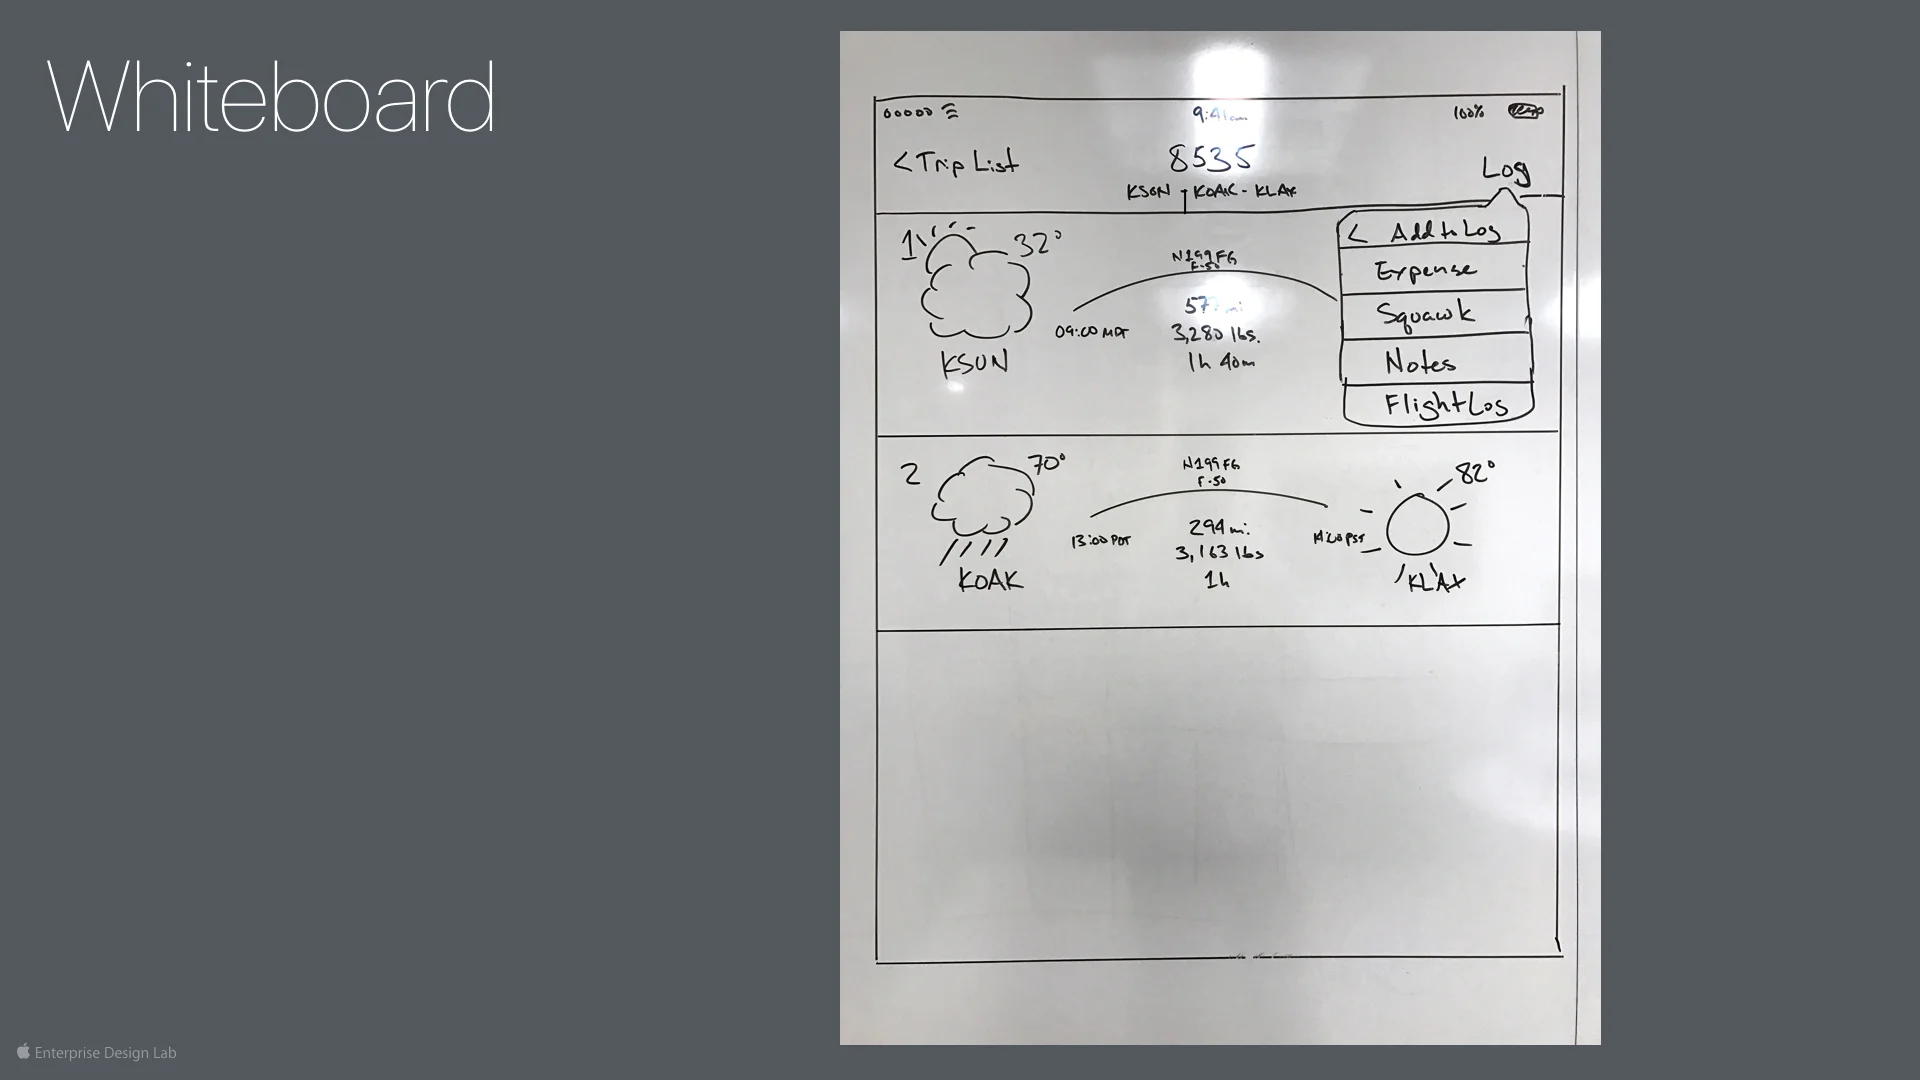 Whiteboard
9:41am
100%
< Trip List
8535
Log
KSUN - KOAK - KLAX
< Add to Log
Expense
Squawk
Notes
Flight Log
1
32°
N199FG
F-50
577 mi
09:00 MDT
3,280 lbs.
1h 40m
KSUN
2
70°
N199FG
F-50
82°
13:00 PDT
294 mi.
3,163 lbs
1h
PST
KOAK
KLAX
Enterprise Design Lab